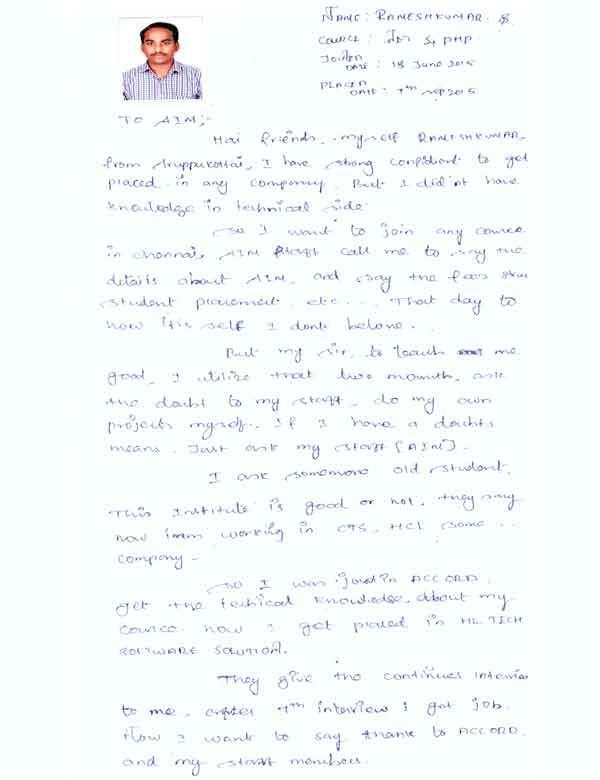 NAME: RAMESHKUMAR. B
COURCE : PHP
JOINED
DATE : 18 June 2015
PLACED
DATE : 7th sep 2015
TO AIM;-
Hai friends, myself RAMESHKUMAR,
from Aruppukottai, I have strong confident to get
placed in any company. But I did'nt have
knowledge in technical side.
So I want to join any cource
in chennai, AIM staff call me to say the
details about AIM, and say the fees stru
student placement etc... That day to
now it's self I dont belave.
But my sir, to teach me
good, I utilize that two mounth, ask
the doubt to my staff, do my own
projects myself. If I have a doubts
means. Just ask my staff (AIM).
I ask somemore old student,
This Institute is good or not, they say
now iam working in CTS, HCL some ..
company -
So I was joined in ACCORD.
get the techical knowledge about my
cource. now I get placed in TECH
SOFTWARE SOLUTION.
They give the continues interview
to me. after 7th interview I got job.
Now I want to say thanks to ACCORD.
and my staff members.